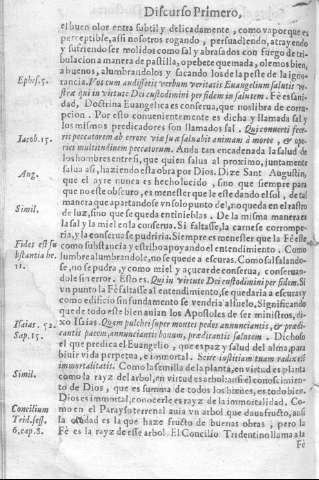 Discurso Primero,
el buen olor entra subtil y delicadamente, como vapor que es
perceptible, assi nosotros rogando, persuadiendo, atrayendo
y sufriendo ser molidos como sal y abrasados con fuego de tri-
bulacion a manera de pastilla, o pebete quemada, olemos bien
a buenos, alumbrandolos y sacando los de la peste de la igno-
Ephes. 1.
rancia. Vos cum audissetis verbum veritatis Euangelium salutis ve-
stræ qui in virtute Dei custodimini per fidem in salutem. Fè es sani-
dad, Doctrina Euangelica es conserua, que nos libra de corrup-
cion. Por esto conuenientemente es dicha y llamada sal y
los mismos predicadores son llamados sal. Qui conuerti fece-
Iacob. 15.
rit peccatorem ab errore viæ suæ saluabit animam à morte, & ope-
riet multitudinem peccatorum. Anda tan encadenada la salud de
los hombres entre si, que quien salua al proximo, juntamente
salua assi, haziendo esta obra por Dios. Dize Sant Augustin,
Aug.
que el ayre nunca es hecho lucido, sino que siempre para
que no este obscuro, es menester que le este dando el sol, de tal
manera que apartandose vn solo punto del, no queda en el rastro
Simil.
de luz, sino que se queda en tinieblas. De la misma manera es
la sal y la miel en la conserua. Si faltasse, la carne se corrompe-
ria, y la conserua se pudriria. Siempre es menester que la Fè este
Fides est su
como substancia y estribo apoyando el entendimiento. Como
bstantia he.
lumbre alumbrandole, no se quede a escuras. Como sal salando-
11.
se, no se pudra, y como miel y açucar de conserua, conseruan-
dole sin error. Esto es. Qui in virtute Dei custodimini per fidem. Si
vn punto la Fè faltasse al entendimiento, se quedaria a escuras y
como edificio sin fundamento se vendria al suelo. Significando
que de todo este bien auian los Apostoles de ser ministros, di-
Isaias. 52.
xo Isaias. Quam pulchri super montes pedes annunciantis, & prædi-
Sap. 15.
cantis pacem, annunciantis bonum, prædicantis salutem. Dichoso
el que predica el Euangelio, que es paz y salud del alma, para
biuir vida perpetua, e immortal. Scire iustitiam tuam radix est
immortalitatis. Como la semilla de la planta, en virtud es planta
Simil.
como la rayz del arbol, en virtud es arbol: assi el conoscimien-
to de Dios, que es summa de todos los bienes, es todo bien.
Dios es immortal, conocerle es rayz de la immortalidad. Co-
Concilium
mo en el Parayso terrenal auia vn arbol que daua fructo, assi
Trid. sess.
la es la que haze fructo de buenas obras, pero la
6. cap. 8.
Fè es la rayz de esse arbol. El Concilio Tridentino llama a la
Fè